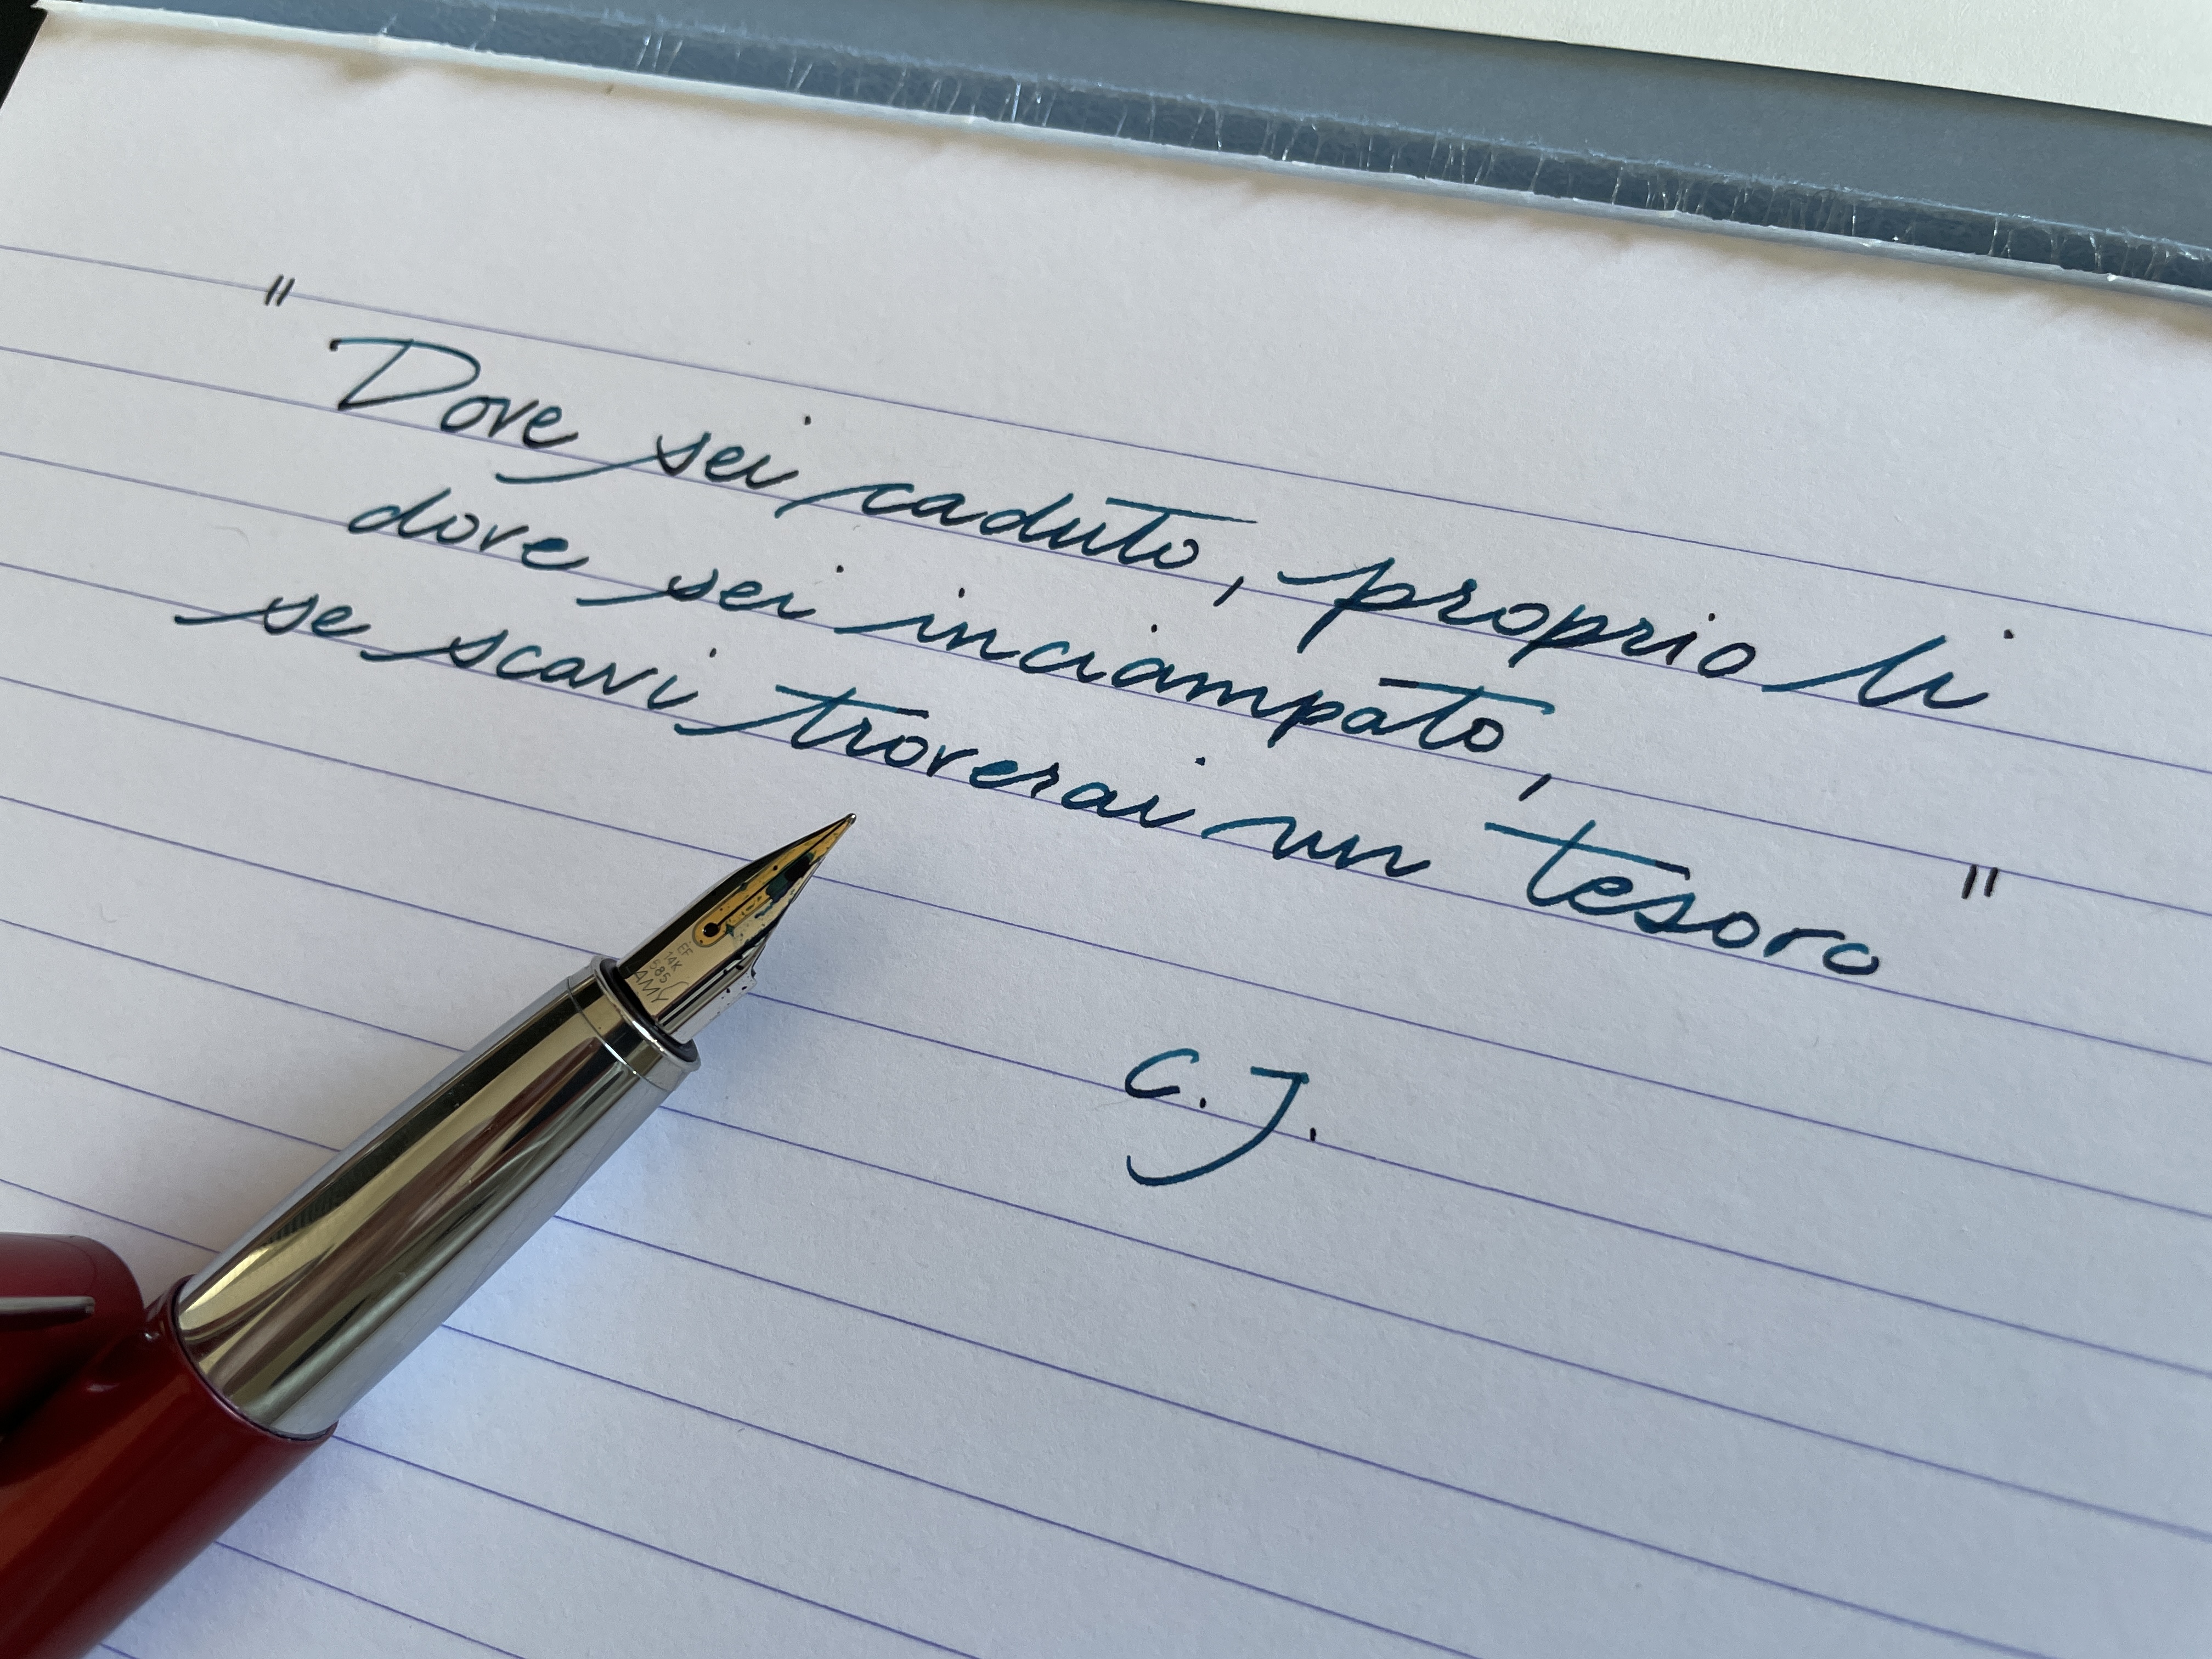 "Dove sei caduto, proprio li
dove sei inciampato,
se scavi troverai un tesoro"
C. J.
EF
14K
585
LAMY